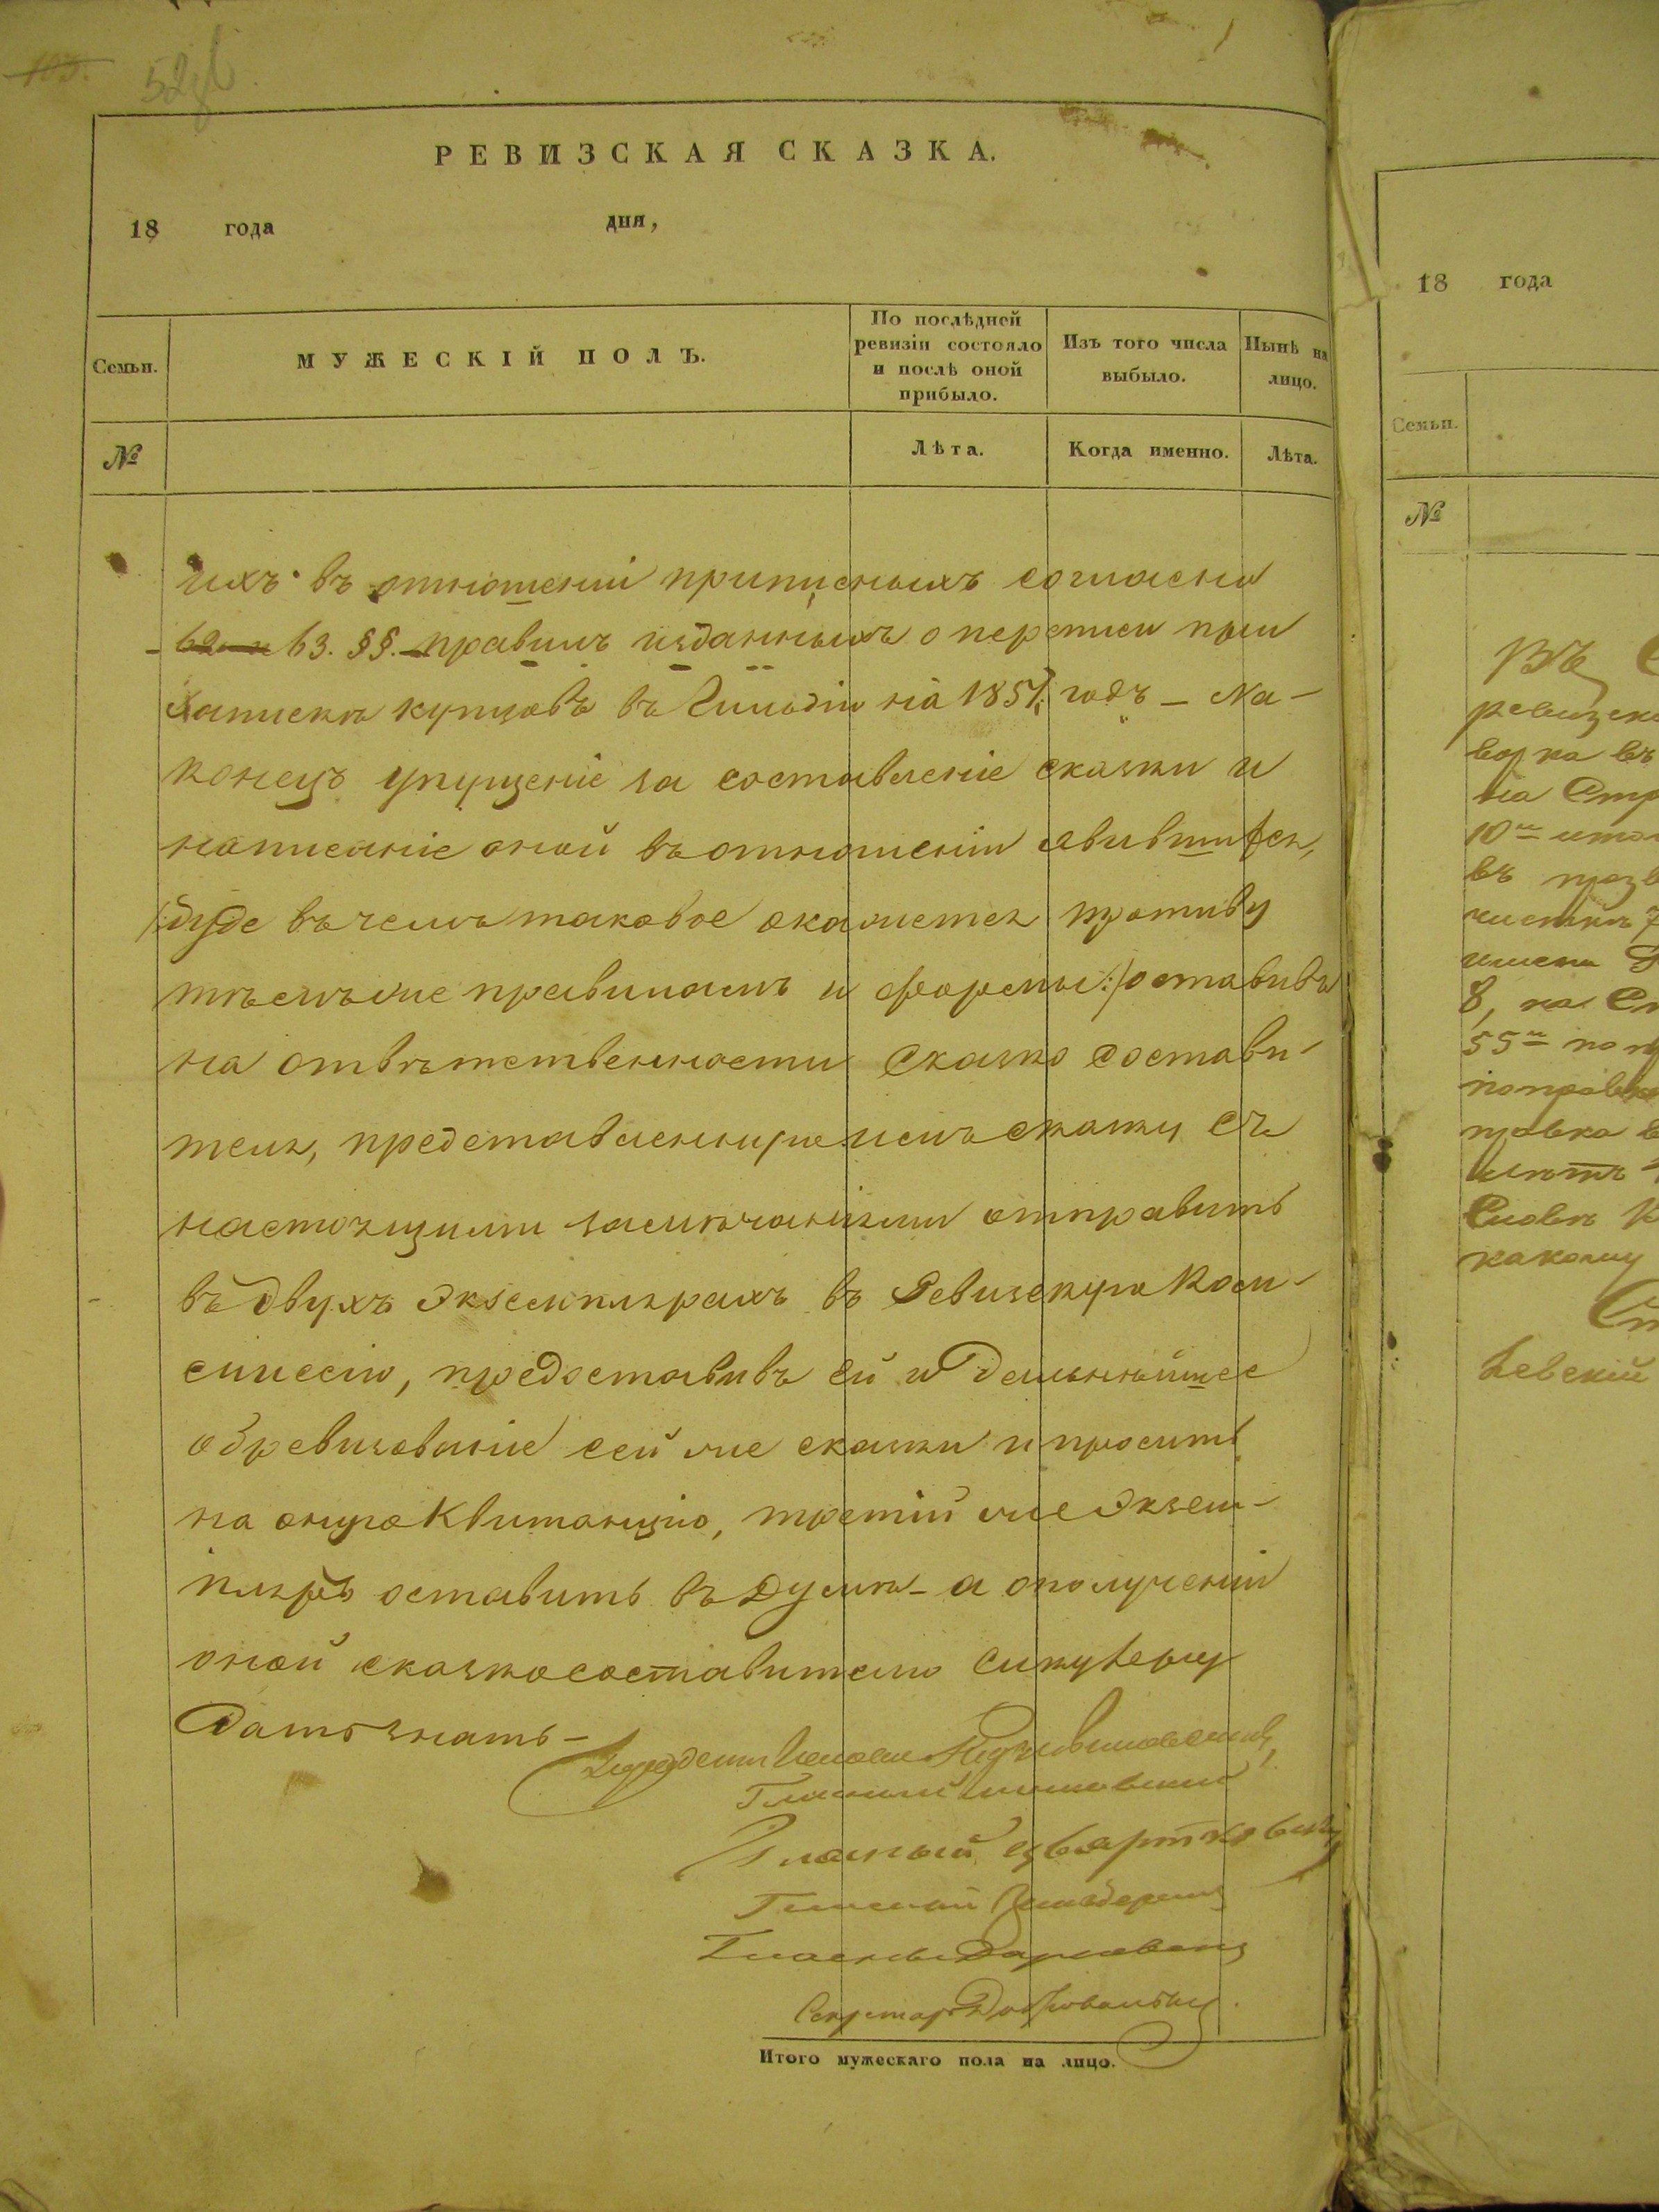 103.
52
РЕВИЗСКАЯ СКАЗКА.
18 года дня,
Семьи.
МУЖЕСКІЙ ПОЛЪ.
По послѣдней ревизіи состояло и послѣ оной прибыло.
Изъ того числа выбыло.
Нынѣ на лицо.
№
Лѣта.
Когда именно.
Лѣта.
ихъ въ отношеніи приписныхъ согласно
62 и 63. §§. правилъ изданныхъ о переписи при
запискѣ купцовъ въ Гильдіи на 1851 годъ – На-
конецъ упущеніе за составленіе сказки и
написаніе оной въ отношеніи явившихся,
/:буде въ чемъ таковое окажется противу
тѣхъ же правиламъ и формы:/ оставивъ
на отвѣтственности Сказко состави-
теля, представленную имъ сказку съ
настоящими замѣчаніями отправить
въ двухъ экземплярахъ въ Ревизскую Ком-
миссію, предоставивъ ей и дальнѣйшее
обревизованіе сей же сказки и просить
на оную Квитанцію, третій же Экзем-
пляръ оставить въ Думѣ – а о полученіи
оной сказкосоставителю
дать знать –
Гласный
Гласный
Гласный
Гласный
Секретарь
Итого мужескаго пола на лицо.
18 года
Семьи.
№
въ
на
10
въ
8, на
55
какому